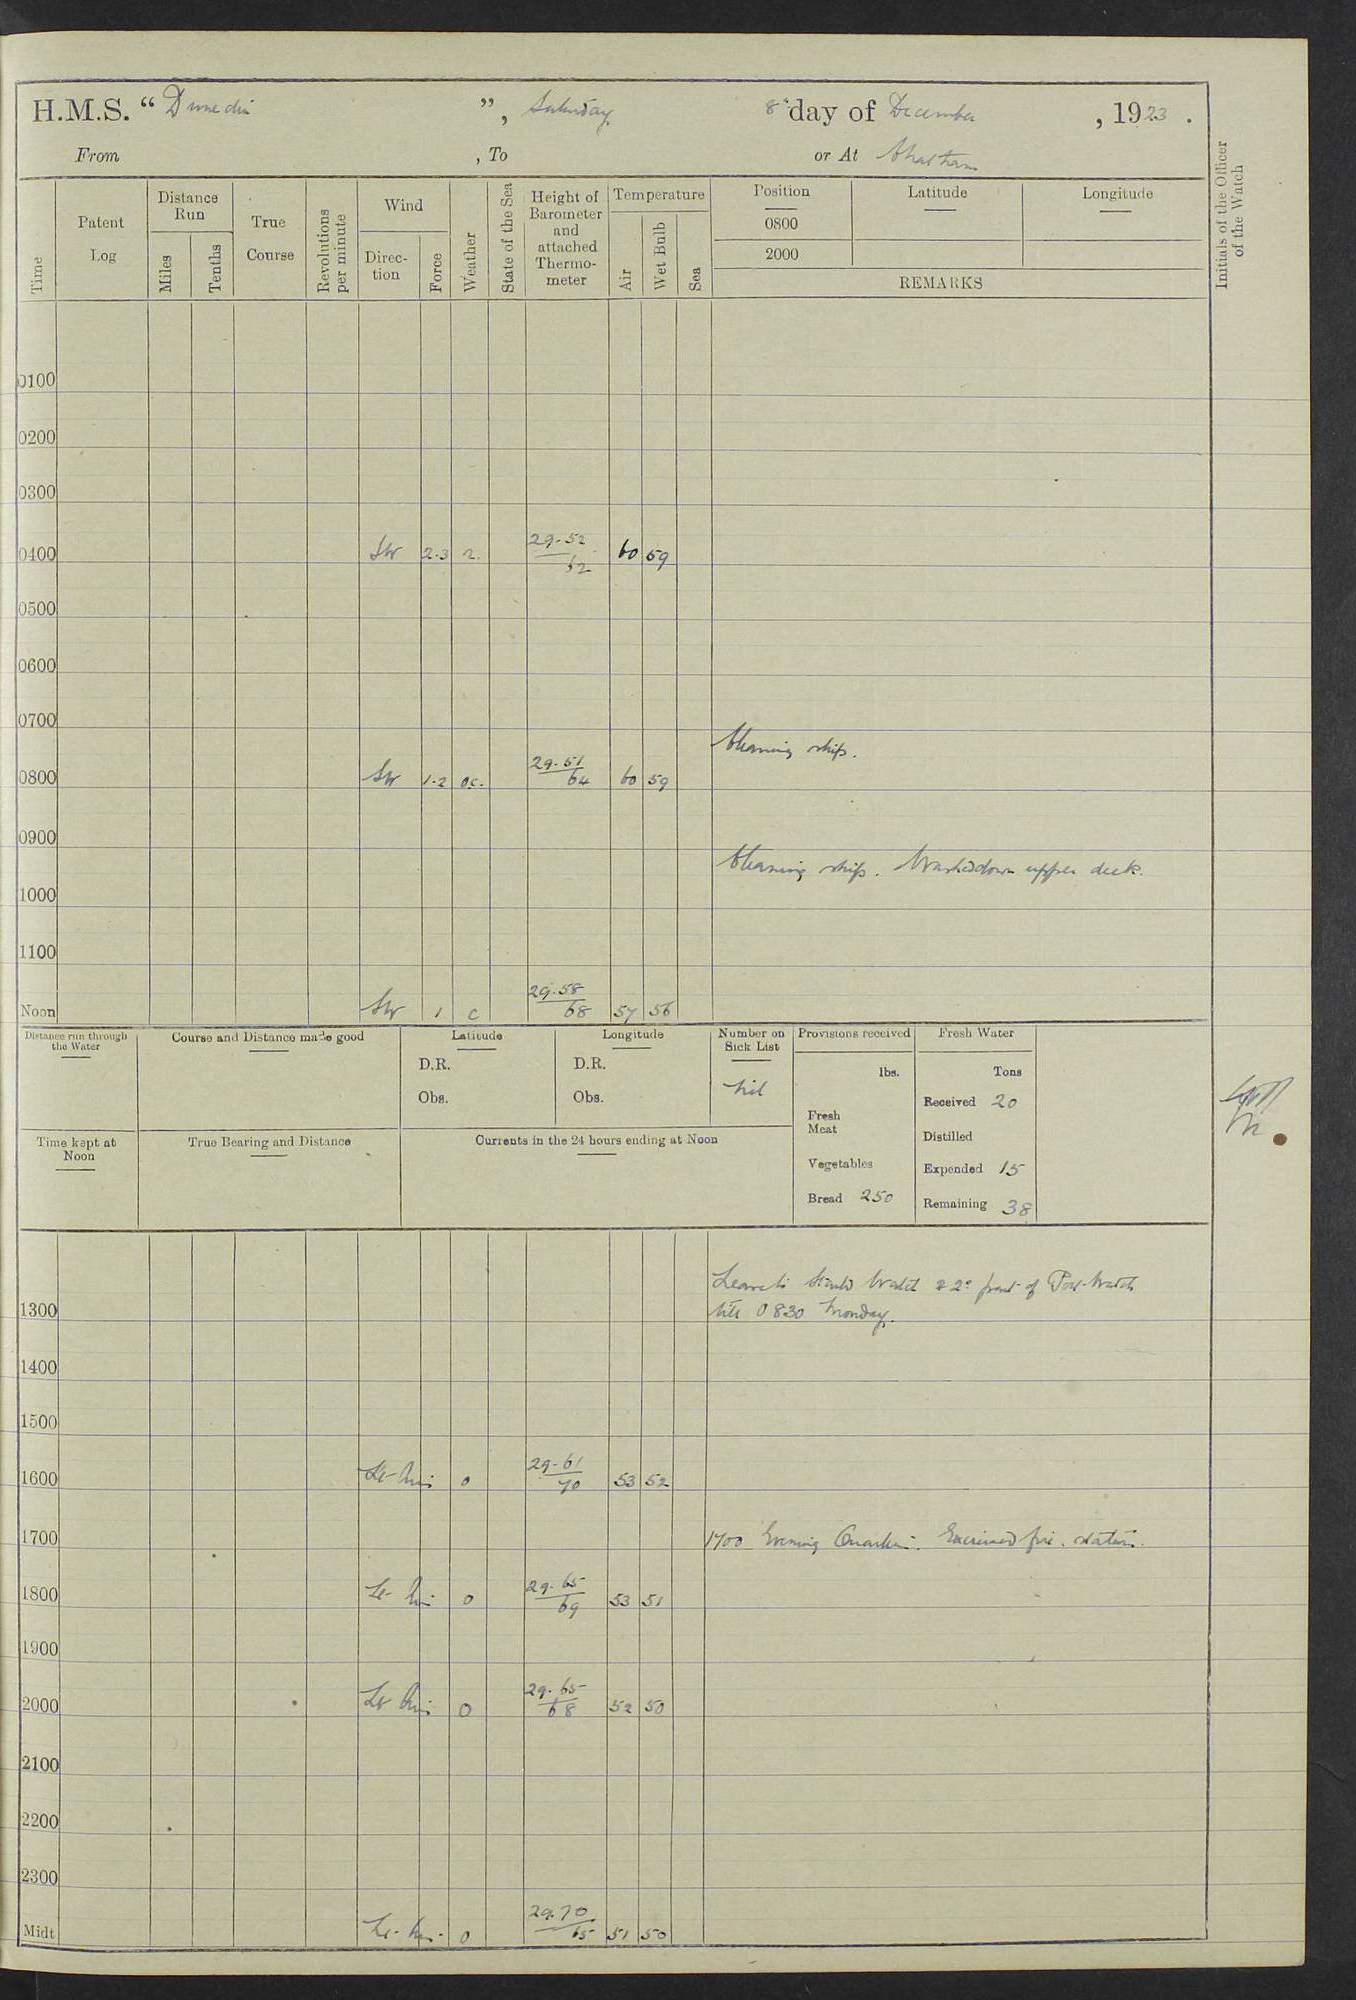 H.M.S. “Dunedin”, Saturday 8th day of December, 1923.
From , To or At Chatham
Time
Patent Log
Distance Run
Miles
Tenths
True Course
Revolutions per minute
Wind
Direction
Force
Weather
State of the Sea
Height of Barometer and attached Thermometer
Temperature
Air
Wet Bulb
Sea
Position Latitude Longitude
0800
2000
REMARKS
Initials of the Officer of the Watch
0100
0200
0300
0400 SW 2-3 29.52 62 60 59
0500
0600
0700
Cleaning ship.
0800 SW 1-2 oc. 29.51 64 60 59
0900
Cleaning ship. Washed down upper deck.
1000
1100
Noon SW 1 c 29.58 68 57 56
Distance run through the Water
Course and Distance made good
Latitude
D.R.
Obs.
Longitude
D.R.
Obs.
Number on Sick List
Nil
Provisions received
lbs.
Fresh Meat
Vegetables
Bread 250
Fresh Water
Tons
Received 20
Distilled
Expended 15
Remaining 38
Time kept at Noon
True Bearing and Distance
Currents in the 24 hours ending at Noon
Leave to Starbd Watch & 2nd part of Port Watch
1300 till 0830 Monday.
1400
1500
1600 Lt. Airs 0 29.61 70 53 52
1700 1700 Evening Quarters. Exercised fire stations.
1800 Lt. Airs 0 29.65 69 53 51
1900
2000 Lt. Airs 0 29.65 68 52 50
2100
2200
2300
Midt Lt. Airs 0 29.70 65 51 50